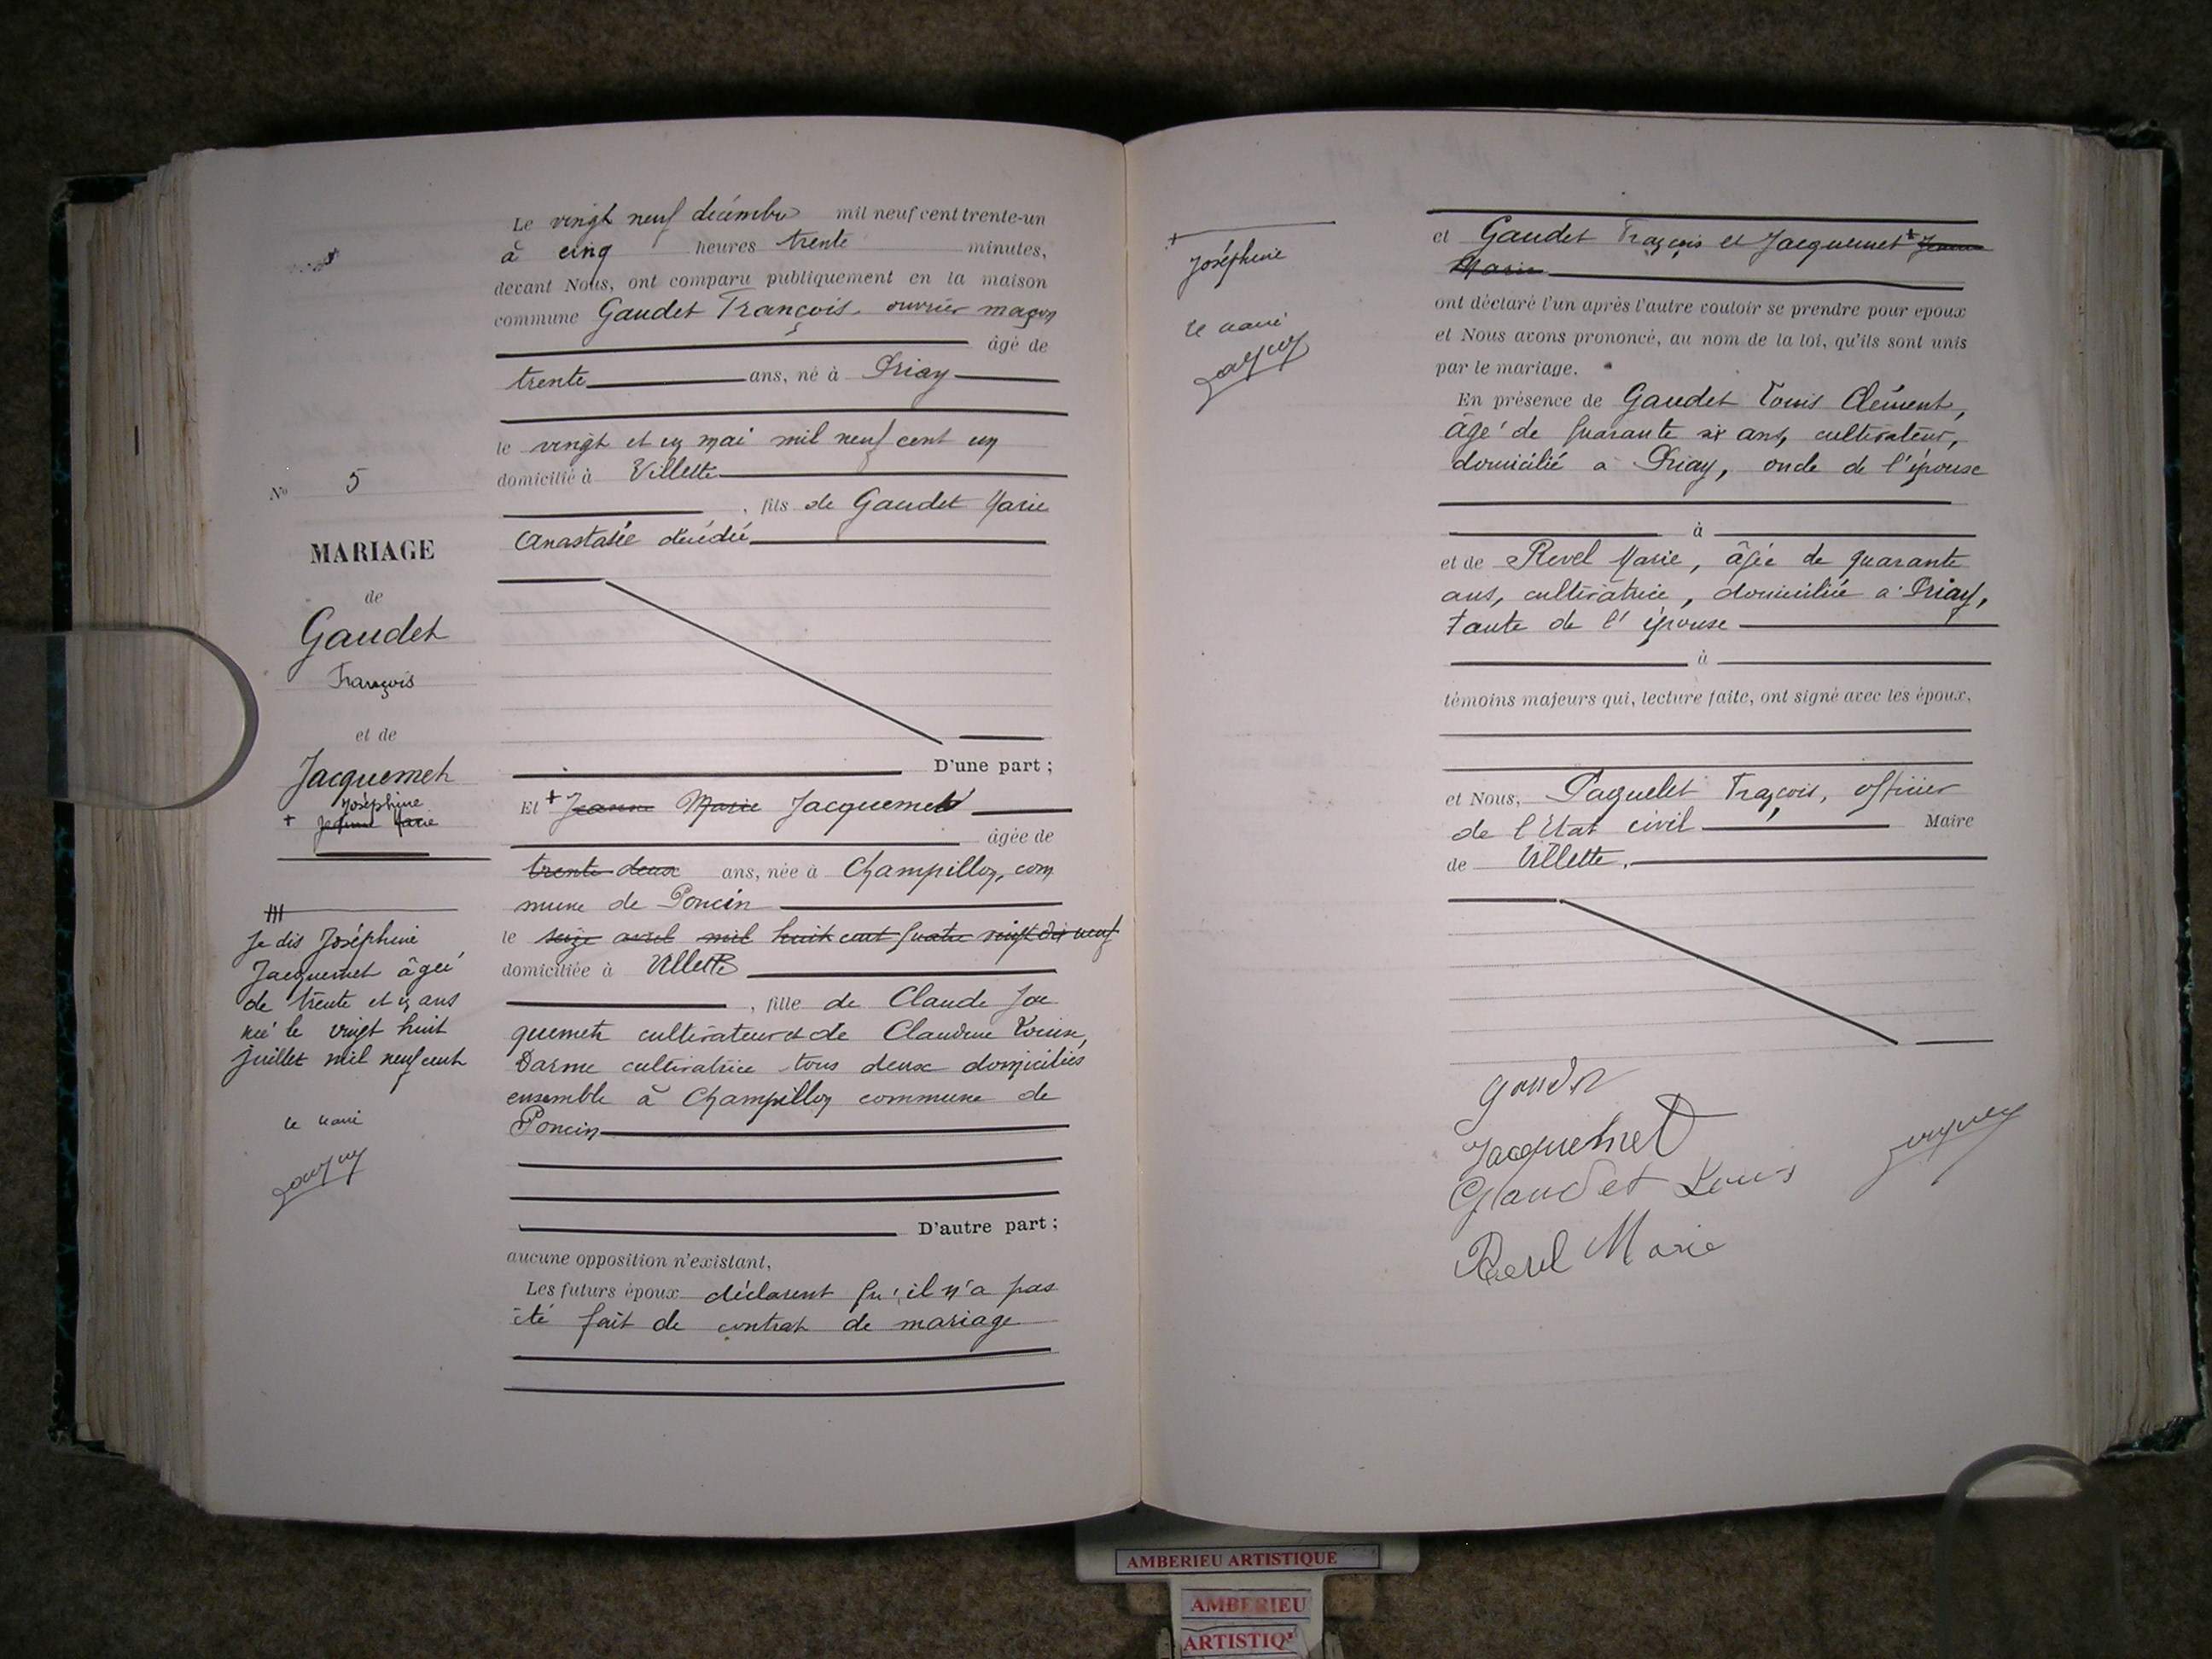 Le vingt neuf décembre mil neuf cent trente-un
à cinq heures trente minutes,
devant Nous, ont comparu publiquement en la maison
commune Gaudet François, ouvrier maçon
âgé de
trente ans, né à Priay
le vingt et un mai mil neuf cent un
domicilié à Villette
, fils de Gaudet Marie
Anastasie décédée
D'une part ;
Et + Jeanne Marie Jacquemet
âgée de
trente deux ans, née à Champillon, com
mune de Poncin
le seize avril mil huit cent quatre vingt dix neuf
domiciliée à Villette
, fille de Claude Jac
quemet cultivateur et de Claudine Louise,
Darme cultivatrice tous deux domiciliés
ensemble à Champillon commune de
Poncin
D'autre part ;
aucune opposition n'existant,
Les futurs époux déclarent qu'il n'a pas
été fait de contrat de mariage
No 5
MARIAGE
de
Gaudet
François
et de
Jacquemet
Joséphine
+ Jeanne Marie
Je dis Joséphine
Jacquemet âgée
de trente et un ans
née le vingt huit
juillet mil neuf cent
le maire
+
Joséphine
le maire
et Gaudet François et Jacquemet + Jeanne
Marie
ont déclaré l'un après l'autre vouloir se prendre pour epoux
et Nous avons prononcé, au nom de la loi, qu'ils sont unis
par le mariage.
En présence de Gaudet Louis Clément,
âgé de quarante six ans, cultivateur,
domicilié a Priay, oncle de l'épouse
à
et de Revel Marie, âgée de quarante
ans, cultivatrice, domiciliée a Priay,
tante de l'épouse
à
témoins majeurs qui, lecture faite, ont signé avec les époux,
et Nous, Paquelet François, officier
de l'Etat civil Maire
de Villette.
Gaudet
Jacquemet
Gaudet Louis
Revel Marie
AMBERIEU ARTISTIQUE
AMBERIEU
ARTISTIQ